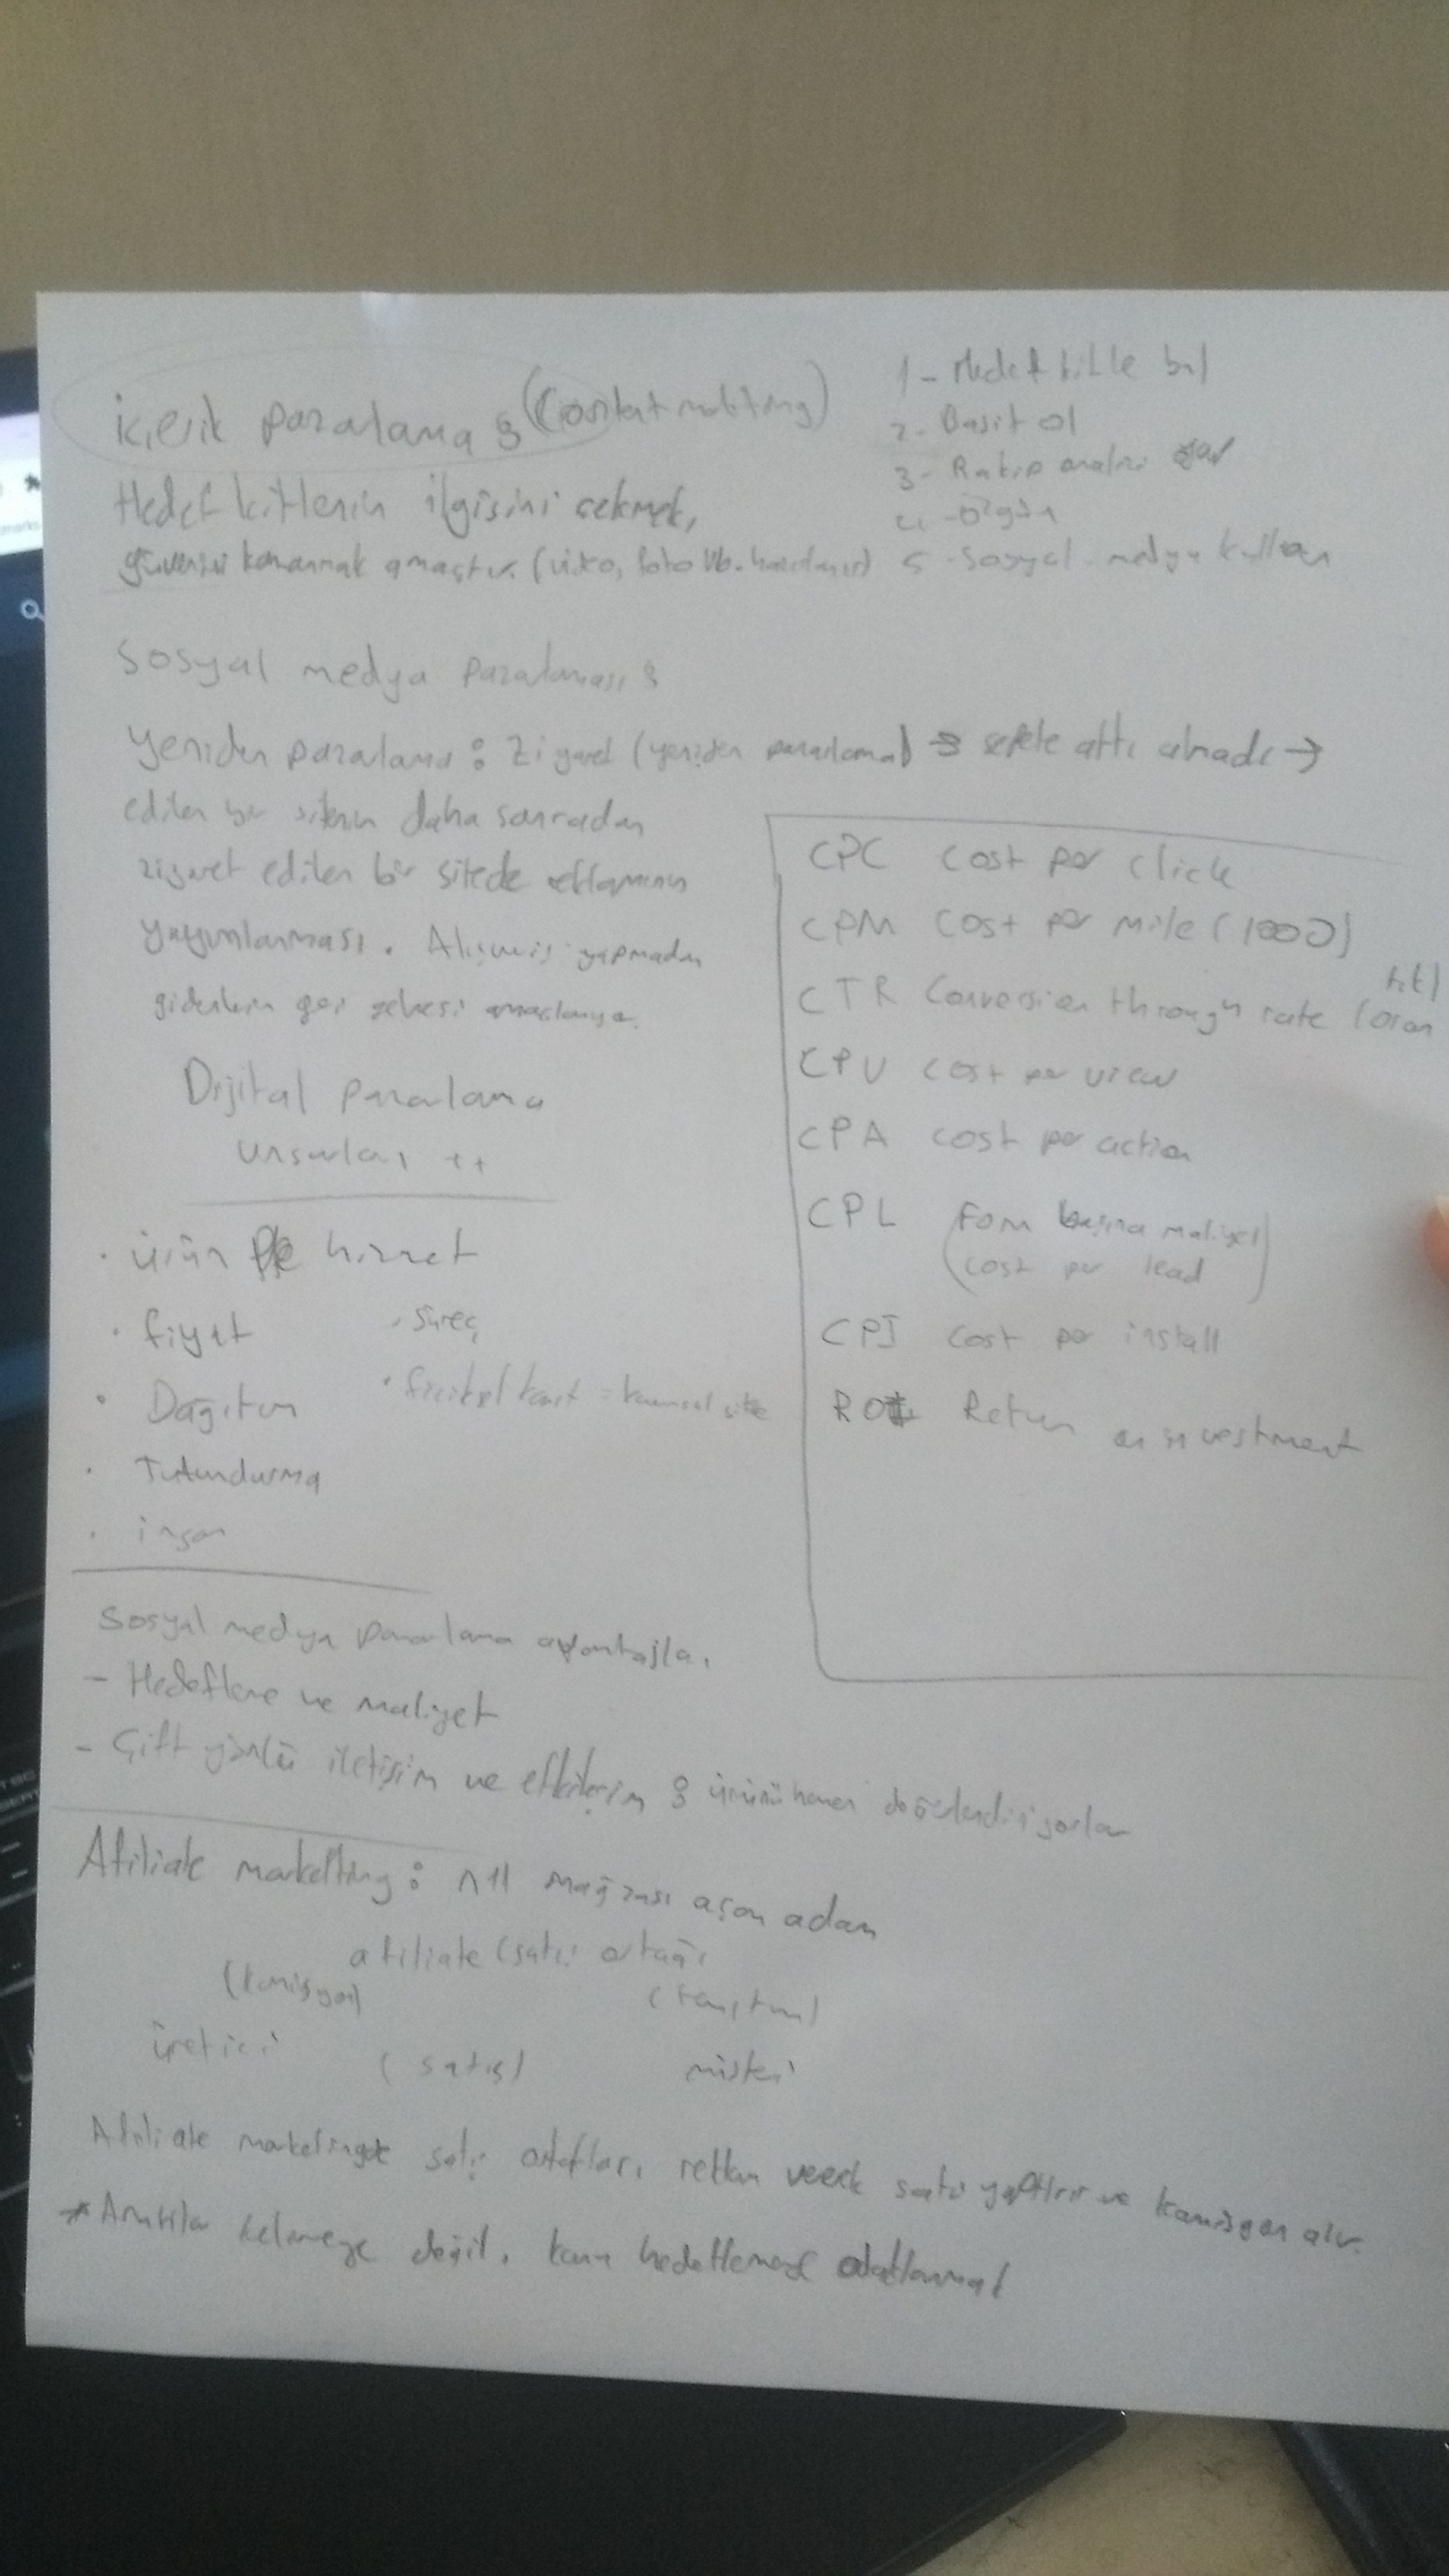 içerik pazarlama : (Contentmarketing)
Hedef kitlenin ilgisini çekmek,
güvenini kazanmak amaçtır. (video, foto vb. hazırlanır)
1- Hedef kitle bul
2- Basit ol
3- Rakip analizi yap
4- Özgün
5- Sosyal medya kullan
Sosyal medya pazarlaması :
yeniden pazarlama : Ziyaret (yeniden pazarlama) → sepete attı almadı →
edilen bir sitenin daha sonradan
ziyaret edilen bir sitede reklamının
yayınlanması. Alışveriş yapmadan
gidenlerin geri gelmesi amaçlanıyor.
Dijital pazarlama
unsurları ++
· ürün hizmet
· fiyat
· Dağıtım
· Tutundurma
· insan
· Süreç
· fiziksel kanıt = kurumsal site
CPC cost per click
CPM cost per mile (1000)
CTR Conversion through rate (oran
tık)
CPV cost per view
CPA cost per action
CPL Form başına maliyet
(cost per lead)
CPI cost per install
ROI Return on investment
Sosyal medya pazarlama avantajları
- Hedefleme ve maliyet
- Çift yönlü iletişim ve etkileşim : ürünü hemen değerlendiriyorlar
Afiliate marketting : n11 mağzası açan adam
afiliate (satış ortağı
(komisyon) (tanıtım)
üretici (satış) müşteri
Afiliate marketingde satış ortakları, reklam vererek satış yaptırır ve komisyon alır.
* Anahtar kelimeye değil, konu hedeflemeye odaklanmal